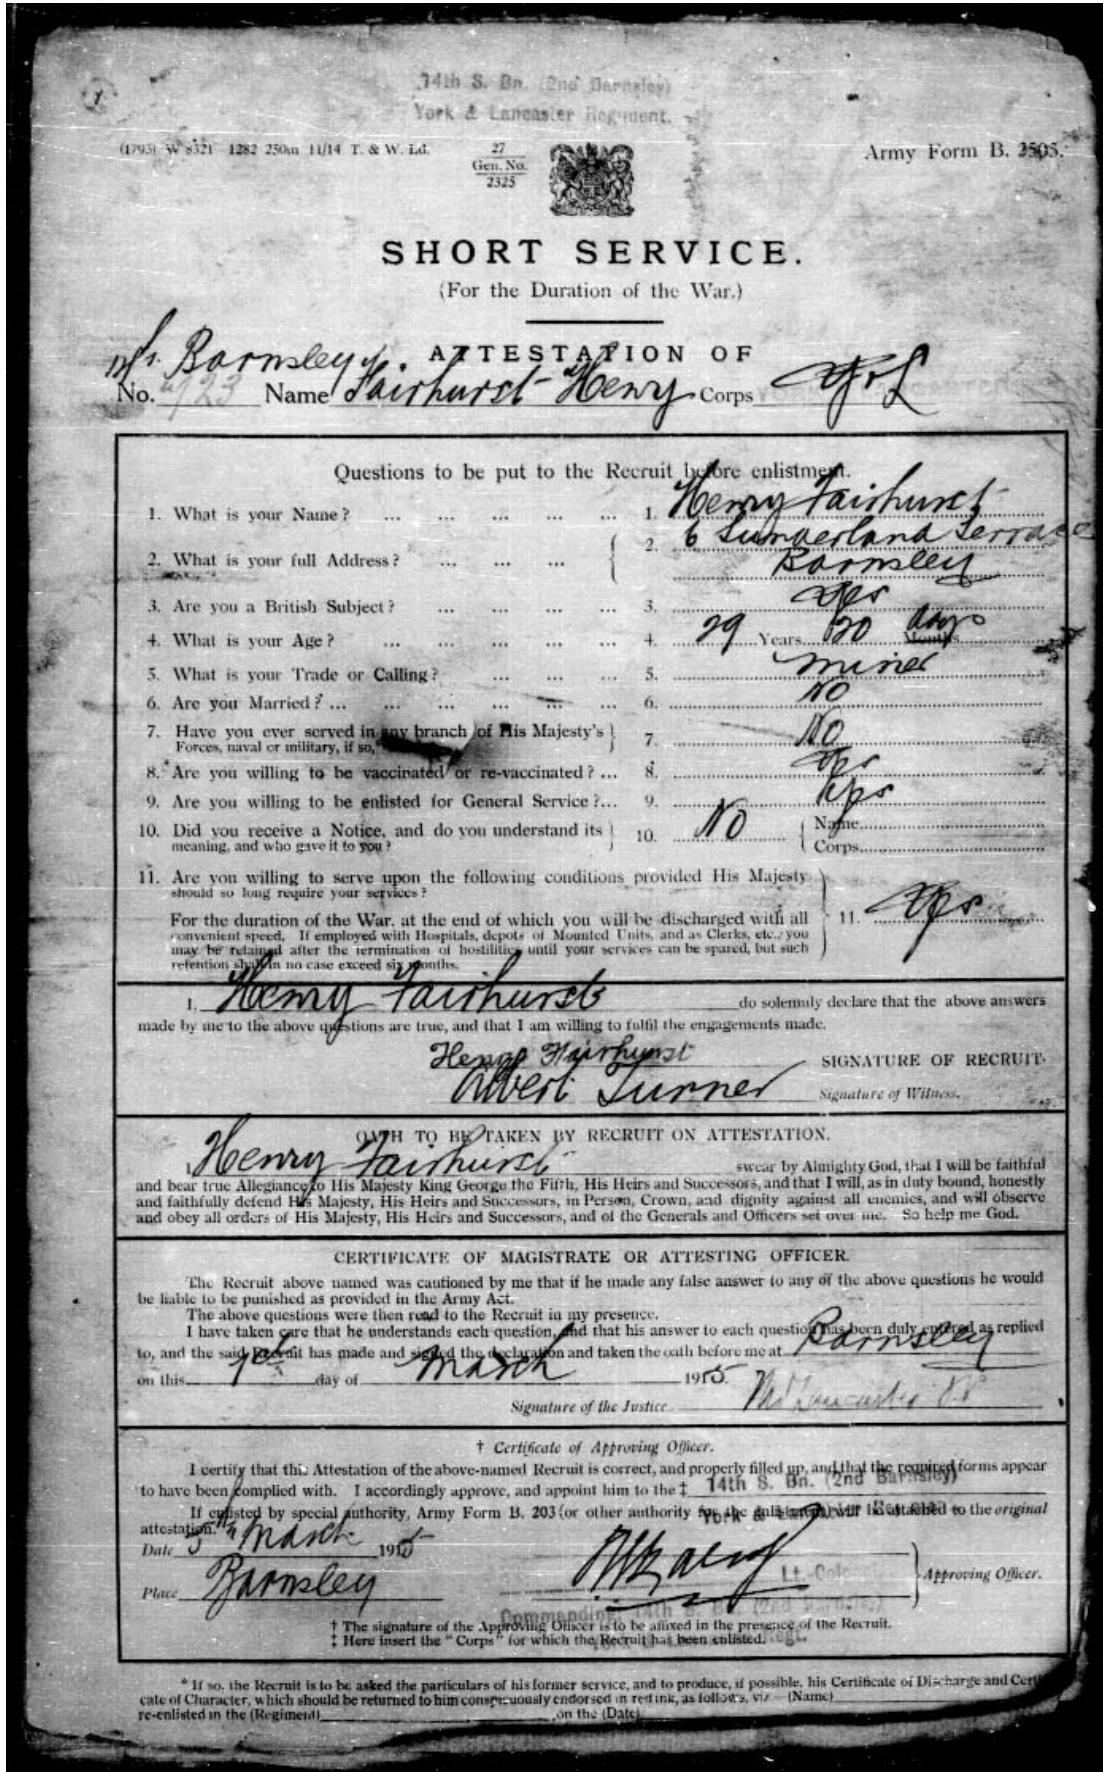 14th S. Bn. (2nd Barnsley)
York & Lancaster Regiment.
(1793) W 8321 1282 250m 11/14 T. & W. Ld.
27
Gen. No.
2325
Army Form B. 2505.
SHORT SERVICE.
(For the Duration of the War.)
ATTESTATION OF
Barnsley
No. Name Fairhurst Henry Corps Y & L
Questions to be put to the Recruit before enlistment.
1. What is your Name? ... ... ... ... ... 1. Henry Fairhurst
2. What is your full Address? ... ... ... 2. 6 Sunderland Terrace
Barnsley
3. Are you a British Subject? ... ... ... ... 3. Yes
4. What is your Age? ... ... ... ... ... 4. 29 Years 20 days Months
5. What is your Trade or Calling? ... ... ... 5. Miner
6. Are you Married? ... ... ... ... ... ... 6. No
7. Have you ever served in any branch of His Majesty's 7. No
Forces, naval or military, if so,
8.* Are you willing to be vaccinated or re-vaccinated? ... 8. Yes
9. Are you willing to be enlisted for General Service?... 9. Yes
10. Did you receive a Notice, and do you understand its 10. No Name
meaning, and who gave it to you? Corps
11. Are you willing to serve upon the following conditions provided His Majesty
should so long require your services?
For the duration of the War, at the end of which you will be discharged with all 11. Yes
convenient speed. If employed with Hospitals, depots of Mounted Units, and as Clerks, etc., you
may be retained after the termination of hostilities until your services can be spared, but such
retention shall in no case exceed six months.
I, Henry Fairhurst do solemnly declare that the above answers
made by me to the above questions are true, and that I am willing to fulfil the engagements made.
Henry Fairhurst SIGNATURE OF RECRUIT.
Albert Turner Signature of Witness.
OATH TO BE TAKEN BY RECRUIT ON ATTESTATION.
I, Henry Fairhurst swear by Almighty God, that I will be faithful
and bear true Allegiance to His Majesty King George the Fifth, His Heirs and Successors, and that I will, as in duty bound, honestly
and faithfully defend His Majesty, His Heirs and Successors, in Person, Crown, and dignity against all enemies, and will observe
and obey all orders of His Majesty, His Heirs and Successors, and of the Generals and Officers set over me. So help me God.
CERTIFICATE OF MAGISTRATE OR ATTESTING OFFICER.
The Recruit above named was cautioned by me that if he made any false answer to any of the above questions he would
be liable to be punished as provided in the Army Act.
The above questions were then read to the Recruit in my presence.
I have taken care that he understands each question, and that his answer to each question has been duly entered as replied
to, and the said Recruit has made and signed the declaration and taken the oath before me at Barnsley
on this 1st day of March 1915.
Signature of the Justice
† Certificate of Approving Officer.
I certify that this Attestation of the above-named Recruit is correct, and properly filled up, and that the required forms appear
to have been complied with. I accordingly approve, and appoint him to the ‡ 14th S. Bn. (2nd Barnsley)
York & Lancaster Regiment.
If enlisted by special authority, Army Form B. 203 (or other authority for the enlistment) will be attached to the original
attestation.
Date 5th March 1915
Place Barnsley Lt.-Colonel Approving Officer.
Commanding 14th S. Bn. (2nd Barnsley)
† The signature of the Approving Officer is to be affixed in the presence of the Recruit.
‡ Here insert the "Corps" for which the Recruit has been enlisted.
* If so, the Recruit is to be asked the particulars of his former service, and to produce, if possible, his Certificate of Discharge and Certi
cate of Character, which should be returned to him conspicuously endorsed in red ink, as follows, viz. (Name)
re-enlisted in the (Regiment) on the (Date)